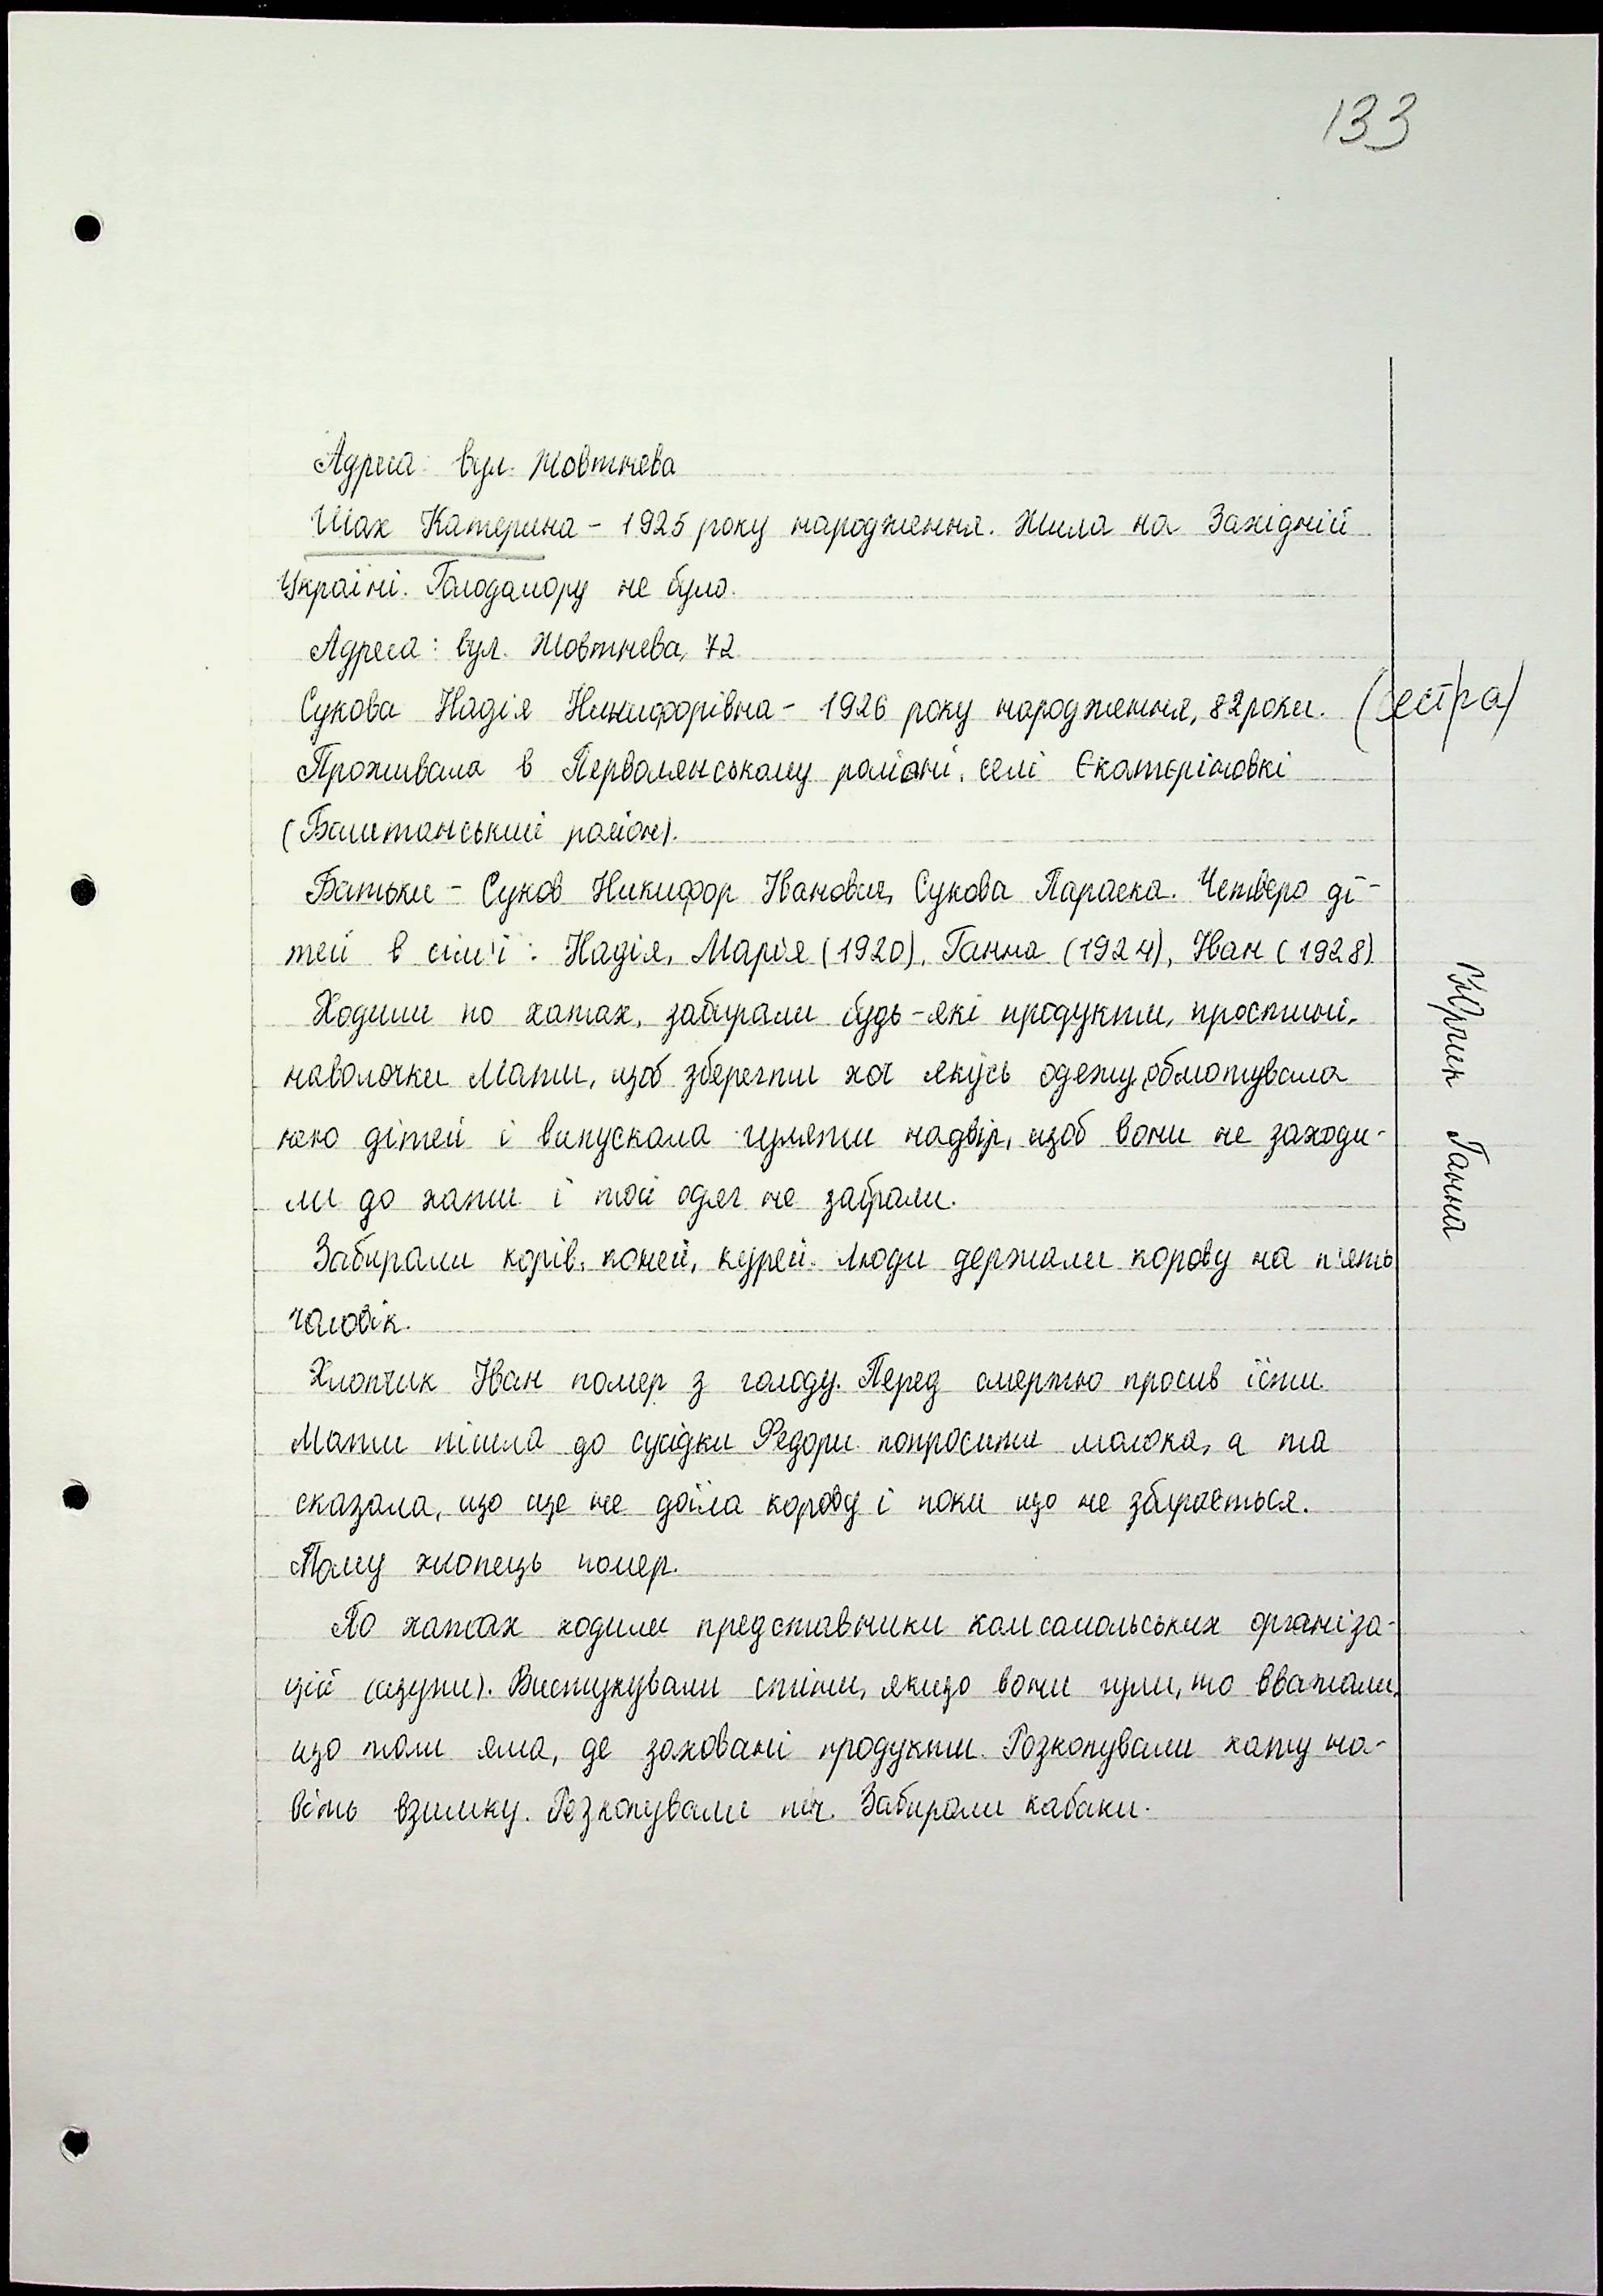 133
Адреса: вул. Жовтнева
Шах Катерина – 1925 року народження. Жила на Західній
Україні. Голодомору не було.
Адреса: вул. Жовтнева, 72
Сукова Надія Никифорівна – 1926 року народження, 82 роки. (сестра)
Проживала в Первомянському районі, селі Єкатєріновкі
(Баштанський район).
Батьки – Суков Никифор Іванович, Сукова Параска. Четверо ді-
тей в сім'ї: Надія, Марія (1920), Ганна (1924), Іван (1928)
Ходили по хатах, забирали будь-які продукти, простині,
наволочки. Мати, щоб зберегти хоч якусь одежу, обмотувала
нею дітей і випускала гуляти надвір, щоб вони не заходи-
ли до хати і той одяг не забрали.
Забирали корів, коней, курей. Люди держали корову на п'ять
чоловік.
Хлопчик Іван помер з голоду. Перед смертю просив їсти.
Мати пішла до сусідки Федори попросити молока, а та
сказала, що ще не доїла корову і поки що не збирається.
Тому хлопець помер.
По хатах ходили представники комсомольських організа-
цій (щупи). Вистукували стіни, якщо вони гули, то вважали,
що там яма, де заховані продукти. Розкопували хату на-
віть взимку. Розкопували піч. Забирали кабаки.
Ганна